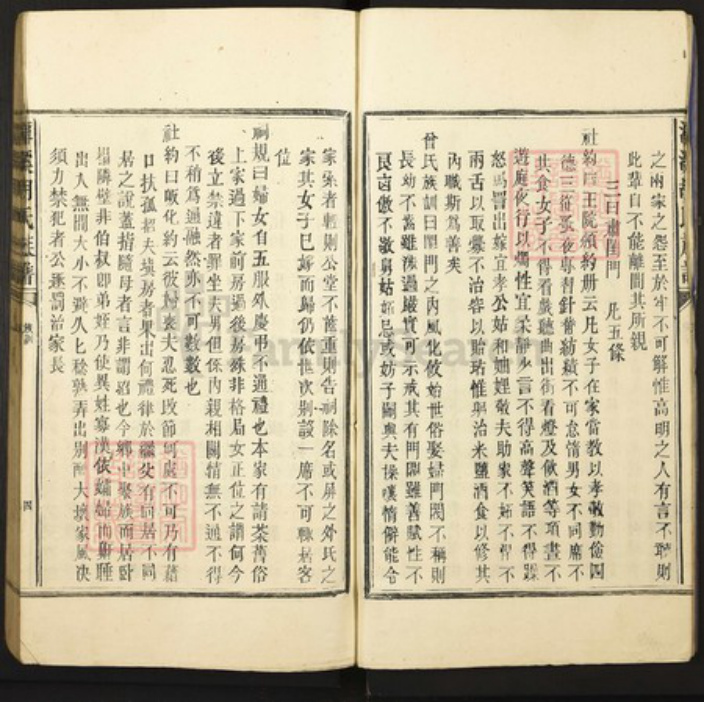 之兩家之怨至於牢不可解惟高明之人有言不聽則
此輩自不能離間其所親
三曰肅閨門 凡五條
社約曰王院頒約册云凡女子在家當教以孝敬勤儉四
德三從蚤夜專習針黹紡績不可怠惰男女不同席不
共食女子不得看戲聽曲出街看燈及飲酒等項晝不
遊庭夜行以燭性宜柔靜少言不得高聲笑語不得躁
怒罵詈出嫁宜孝公姑和妯娌敬夫助家不妬不悍不
兩舌以取釁不治容以貽玷惟與治米鹽酒食以修其
內職斯爲善矣
曾氏族訓曰閨門之內風化攸始世俗娶婦門閥不稱則
長幼不當雖法過嚴實可示戒其有門閥雖善賦性不
良凶傲不敬舅姑妬忌或妨子嗣與夫操嘆情僻能令
家索者輕則公堂不蓋重則告祠除名或屏之外氏之
家其女子已嫁而歸仍依世次別設一席不可輒居客
位
祠規曰婦女自五服外慶弔不通禮也本家有請茶舊俗
上家過下家前房過後房殊非格局女正位之謂何今
後立禁違者罪坐夫男但係內親相關情無不通不得
不稍爲通融然亦不可數數也
社約曰販化約云彼婦喪夫忍死改節何處不可乃有藉
口扶孤招夫填房者果出何禮律於繼父有同居不同
居之說蓋指隨母者言非謂招也今鄉中聚族而居臥
榻隣壁非伯叔卽弟姪乃使異姓寡漢依孀婦而鼾睡
出入無間大小不避久匕稔熟弄出別醜大壞家風决
須力禁犯者公逐罰治家長
族訓
四